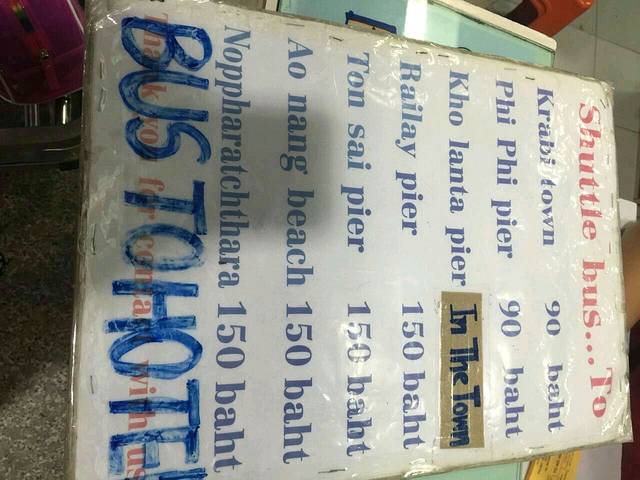 Shuttle bus... To
Krabi town 90 baht
Phi Phi pier 90 baht
Kho lanta pier In The Town
Railay pier 150 baht
Ton sai pier 150 baht
Ao nang beach 150 baht
Noppharatchthara 150 baht
Thank you for contact with us
BUS TO HOTEL